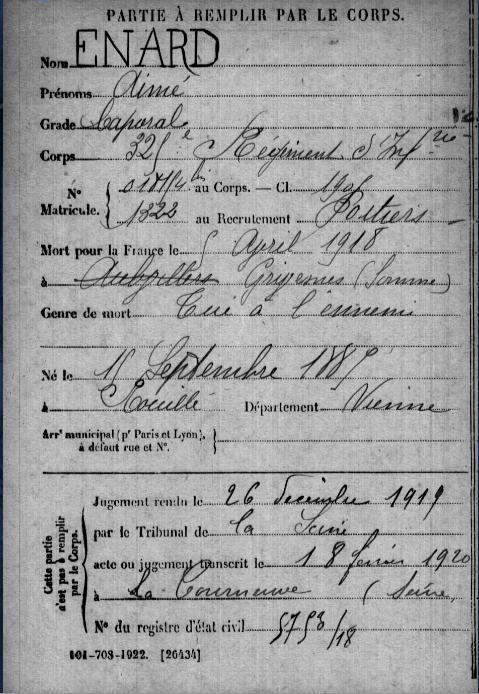 PARTIE À REMPLIR PAR LE CORPS.
Nom ENARD
Prénoms Aimé
Grade Caporal
Corps 325e Régiment d'Infrie
N° Matricule. au Corps. — Cl. 1905
1322 au Recrutement Poitiers
Mort pour la France le 5 April 1918
à Grivesnes (Somme)
Genre de mort Tué à l'ennemi
Né le 15 Septembre 1885
à Rouillé Département Vienne
Arrt municipal (pr Paris et Lyon), à défaut rue et N°.
Cette partie n'est pas à remplir par le Corps.
Jugement rendu le 26 décembre 1919
par le Tribunal de la Seine
acte ou jugement transcrit le 18 février 1920
à La Courneuve (Seine)
N° du registre d'état civil 5753/18
101-708-1922. [26434]